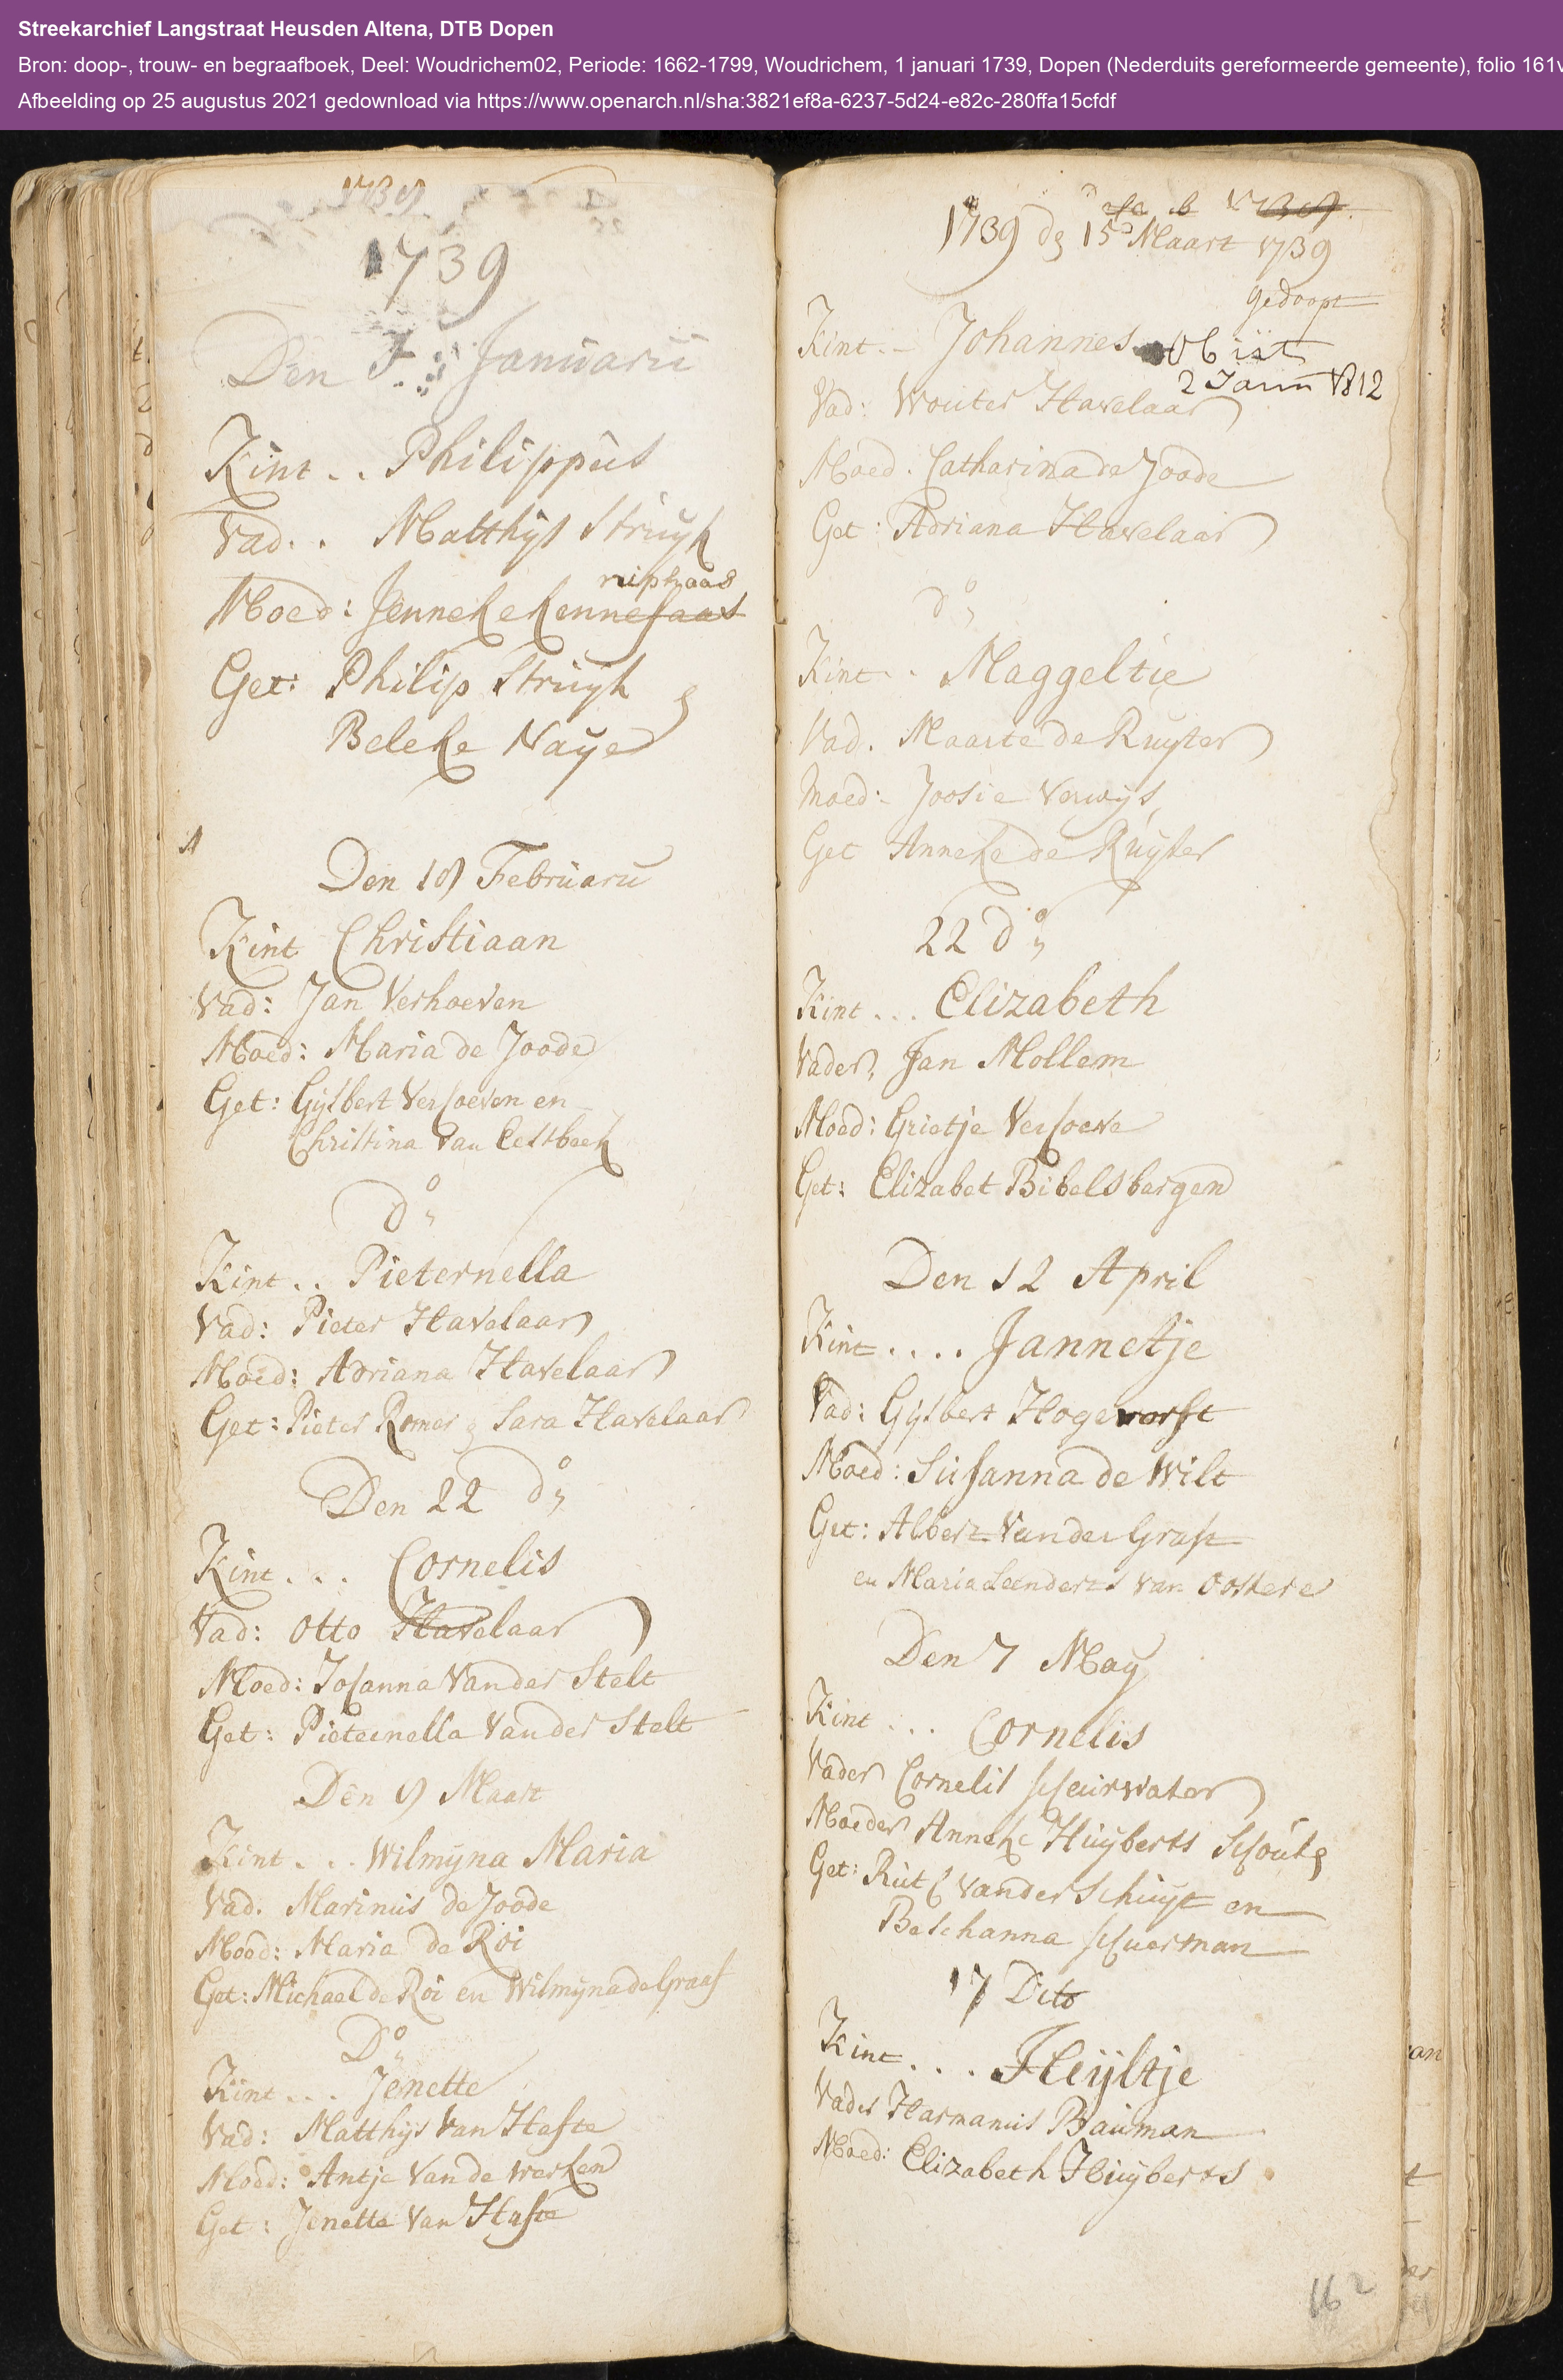 Streekarchief Langstraat Heusden Altena, DTB Dopen
Bron: doop-, trouw- en begraafboek, Deel: Woudrichem02, Periode: 1662-1799, Woudrichem, 1 januari 1739, Dopen (Nederduits gereformeerde gemeente), folio 161v
Afbeelding op 25 augustus 2021 gedownload via https://www.openarch.nl/sha:3821ef8a-6237-5d24-e82c-280ffa15cfdf
1739
1739
Den 1 Januarii
Kint .. Philippus
Vad.. Matthijs Struijk
niphaas
Moed: Jenneke kennefaas
Get: Philip Struijk &
Beleke Naije
Den 19 Februarii
Kint Christiaan
Vad: Jan Verhoeven
Moed: Maria de Joode
Get: Gijsbert Verhoeven en
Christina Van Eestbeek
do
Kint .. Pieternella
Vad: Pieter Havelaar
Moed: Adriana Havelaar
Get: Pieter Romer & Sara Havelaar
Den 22 do
Kint ... Cornelis
Vad: Otto Havelaar
Moed: Johanna Vander Stelt
Get: Pieternella Vander Stelt
Den 9 Maart
Kint ... Wilmijna Maria
Vad. Marinus de Joode
Moed: Maria de Roi
Get: Michael de Roi en Wilmijna de Graaf
Do
Kint ... Jenette
Vad: Matthijs Van Hafte
Moed: Antje Van de Werken
Get: Jenette Van Hafte
1739
1739 dg 15d Maart 1739
gedoopt
Kint .- Johannes obiit
2 Janu 1812
Vad: Wouter Havelaar
Moed. Catharina de Joode
Get: Adriana Havelaar
do
Kint .. Maggeltie
Vad. Maarte de Ruijter
Moed: Joosie Verwijs
Get Anneke de Ruijter
22 do
Kint ... Elizabeth
Vader, Jan Mollem
Moed: Grietje Verhoeve
Get: Elizabet Bibelsbergen
Den 12 April
Kint .... Jannetje
Vad: Gijsbert Hogeworst
Moed: Susanna de Wilt
Get: Albert Vander Graft
en Maria Leenderts van Oostere
Den 7 Maij
Kint ... Cornelis
Vader Cornelis scheurwater
Moeder Anneke Huijberts Schoute
Get: Rut Vander Schuijt en
Bastchanna schuerman
17 Dito
Kint ... Heijltje
Vader Harmanus Bauman
Moed: Elizabeth Huijberts
162